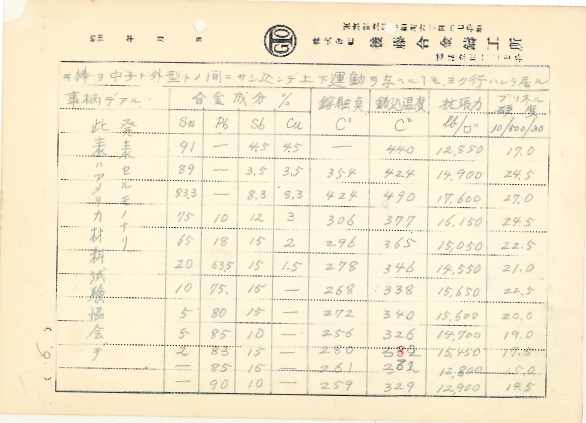 昭和 年 月 日
GTO
株式会社 後藤合金鋳工所
棒ヲ中子ト外型トノ間ニサシ込ンデ上下運動ヲ与ヘルコモヨク行ハレテ居ル
事柄デアル。
合金成分 % 鎔融点 鋳込温度 抗張力 ブリネル硬度
Sn Pb Sb Cu C° C° lb/□" 10/500/30
91 — 4.5 4.5 — 440 12,850 17.0
89 — 3.5 3.5 354 424 14,900 24.5
83.3 — 8.3 8.3 424 490 17,600 27.0
75 10 12 3 306 377 16,150 24.5
65 18 15 2 296 365 15,050 22.5
20 63.5 15 1.5 278 346 14,550 21.0
10 75. 15 — 268 338 15,650 22.5
5 80 15 — 272 340 15,600 20.0
5 85 10 — 256 326 14,700 19.0
2 83 15 — 280 15,450 17.5
— 85 15 — 261 12,800 15.0
— 90 10 — 259 329 12,900 14.5
此表ハアメリカ材料試験協会デ
発表セルモノナリ
(6.)